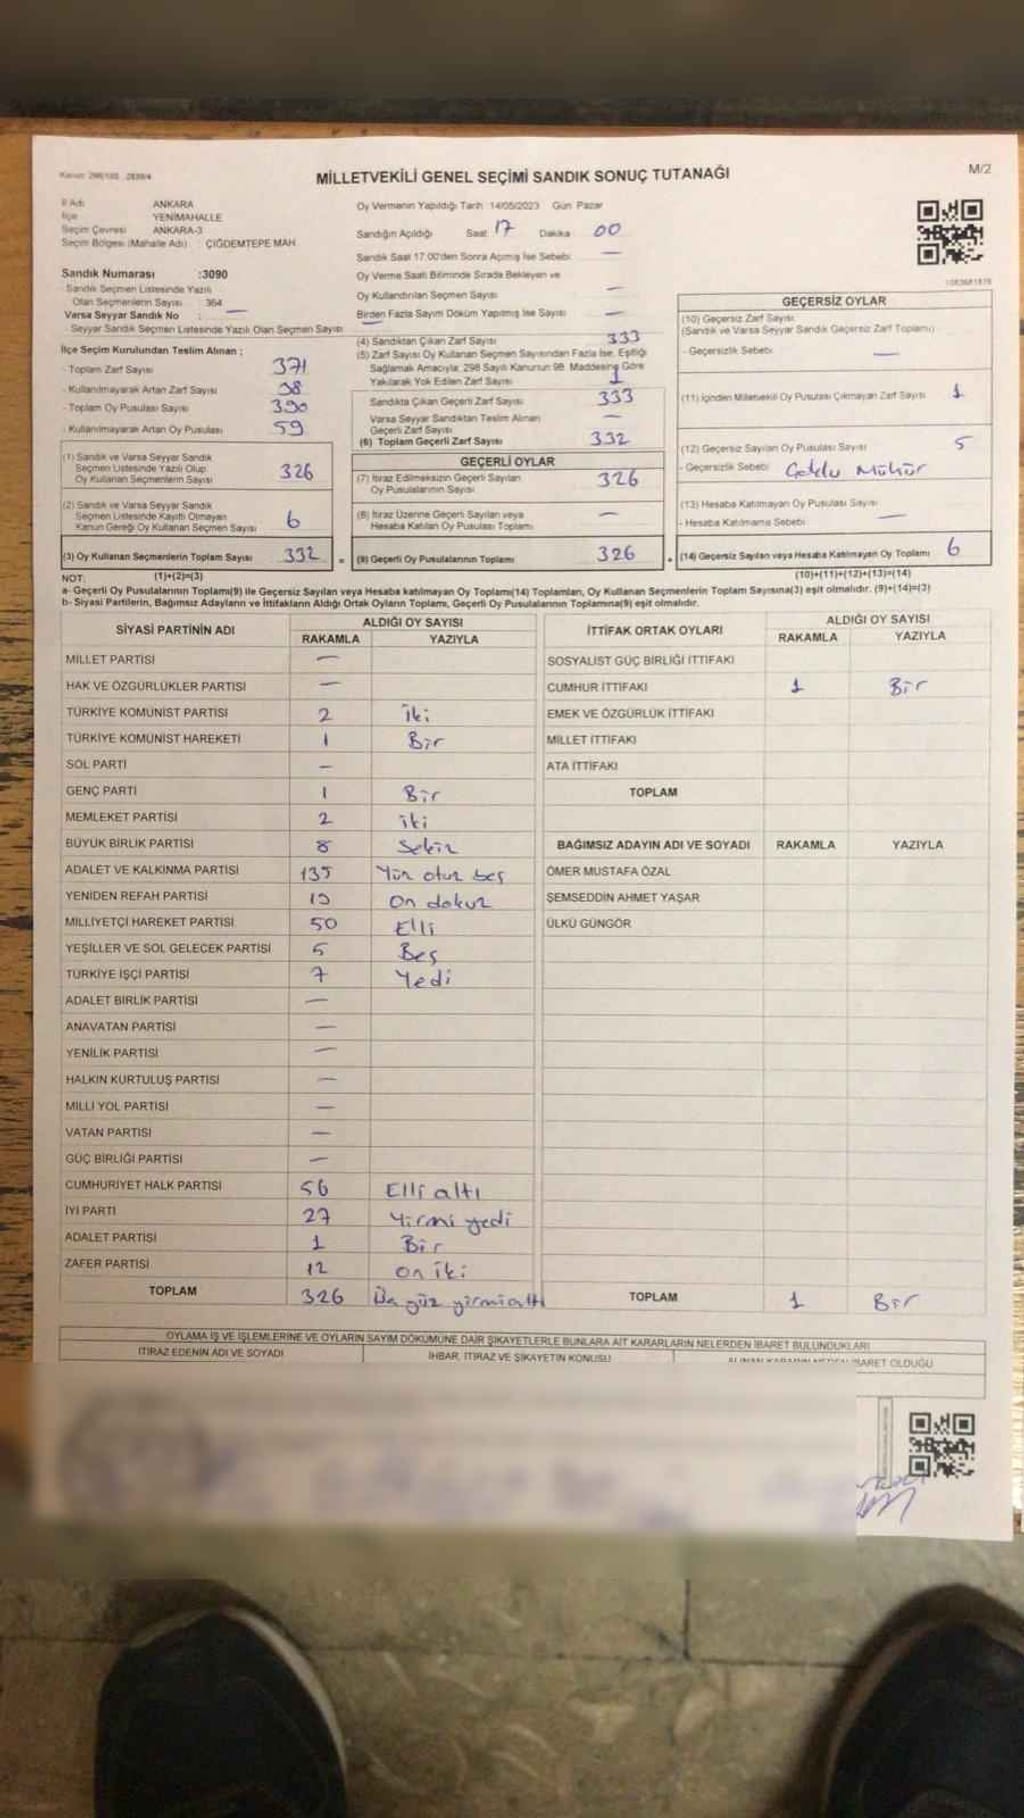 MİLLETVEKİLİ GENEL SEÇİMİ SANDIK SONUÇ TUTANAĞI
M/2
İl Adı ANKARA
İlçe YENİMAHALLE
Seçim Çevresi ANKARA-3
Seçim Bölgesi (Mahalle Adı) : ÇİĞDEMTEPE MAH.
Sandık Numarası :3090
Sandık Seçmen Listesinde Yazılı
Olan Seçmenlerin Sayısı : 364
Varsa Seyyar Sandık No : —
Seyyar Sandık Seçmen Listesinde Yazılı Olan Seçmen Sayısı —
Oy Vermenin Yapıldığı Tarih :14/05/2023 Gün Pazar
Sandığın Açıldığı Saat 17 Dakika 00
Sandık Saat 17:00'den Sonra Açılmış İse Sebebi: —
Oy Verme Saati Bitiminde Sırada Bekleyen ve
Oy Kullandırılan Seçmen Sayısı —
Birden Fazla Sayım Döküm Yapılmış İse Sayısı —
İlçe Seçim Kurulundan Teslim Alınan ;
- Toplam Zarf Sayısı 371
- Kullanılmayarak Artan Zarf Sayısı 38
- Toplam Oy Pusulası Sayısı 390
- Kullanılmayarak Artan Oy Pusulası 59
(1) Sandık ve Varsa Seyyar Sandık
Seçmen Listesinde Yazılı Olup
Oy Kullanan Seçmenlerin Sayısı 326
(2) Sandık ve Varsa Seyyar Sandık
Seçmen Listesinde Kayıtlı Olmayan
Kanun Gereği Oy Kullanan Seçmen Sayısı 6
(3) Oy Kullanan Seçmenlerin Toplam Sayısı 332
(1)+(2)=(3)
(4) Sandıktan Çıkan Zarf Sayısı 333
(5) Zarf Sayısı Oy Kullanan Seçmen Sayısından Fazla İse, Eşitliği
Sağlamak Amacıyla; 298 Sayılı Kanunun 98. Maddesine Göre
Yakılarak Yok Edilen Zarf Sayısı 1
Sandıkta Çıkan Geçerli Zarf Sayısı 333
Varsa Seyyar Sandıktan Teslim Alınan
Geçerli Zarf Sayısı —
(6) Toplam Geçerli Zarf Sayısı 332
GEÇERLİ OYLAR
(7) İtiraz Edilmeksizin Geçerli Sayılan
Oy Pusulalarının Sayısı 326
(8) İtiraz Üzerine Geçerli Sayılan veya
Hesaba Katılan Oy Pusulası Toplamı —
(9) Geçerli Oy Pusulalarının Toplamı 326
GEÇERSİZ OYLAR
(10) Geçersiz Zarf Sayısı
(Sandık ve Varsa Seyyar Sandık Geçersiz Zarf Toplamı)
- Geçersizlik Sebebi —
(11) İçinden Milletvekili Oy Pusulası Çıkmayan Zarf Sayısı 1
(12) Geçersiz Sayılan Oy Pusulası Sayısı 5
- Geçersizlik Sebebi Mühür
(13) Hesaba Katılmayan Oy Pusulası Sayısı
- Hesaba Katılmama Sebebi —
(14) Geçersiz Sayılan veya Hesaba Katılmayan Oy Toplamı 6
(10)+(11)+(12)+(13)=(14)
NOT:
a- Geçerli Oy Pusulalarının Toplamı(9) ile Geçersiz Sayılan veya Hesaba katılmayan Oy Toplamı(14) Toplamları, Oy Kullanan Seçmenlerin Toplam Sayısına(3) eşit olmalıdır. (9)+(14)=(3)
b- Siyasi Partilerin, Bağımsız Adayların ve İttifakların Aldığı Ortak Oyların Toplamı, Geçerli Oy Pusulalarının Toplamına(9) eşit olmalıdır.
SİYASİ PARTİNİN ADI ALDIĞI OY SAYISI
RAKAMLA YAZIYLA
MİLLET PARTİSİ —
HAK VE ÖZGÜRLÜKLER PARTİSİ —
TÜRKİYE KOMÜNİST PARTİSİ 2 İki
TÜRKİYE KOMÜNİST HAREKETİ 1 Bir
SOL PARTİ —
GENÇ PARTİ 1 Bir
MEMLEKET PARTİSİ 2 iki
BÜYÜK BİRLİK PARTİSİ 8 Sekiz
ADALET VE KALKINMA PARTİSİ 135 Yüz otuz beş
YENİDEN REFAH PARTİSİ 19 On dokuz
MİLLİYETÇİ HAREKET PARTİSİ 50 Elli
YEŞİLLER VE SOL GELECEK PARTİSİ 5 Beş
TÜRKİYE İŞÇİ PARTİSİ 7 Yedi
ADALET BİRLİK PARTİSİ —
ANAVATAN PARTİSİ —
YENİLİK PARTİSİ —
HALKIN KURTULUŞ PARTİSİ —
MİLLİ YOL PARTİSİ —
VATAN PARTİSİ —
GÜÇ BİRLİĞİ PARTİSİ —
CUMHURİYET HALK PARTİSİ 56 Elli altı
İYİ PARTİ 27 Yirmi yedi
ADALET PARTİSİ 1 Bir
ZAFER PARTİSİ 12 on iki
TOPLAM 326 Üç yüz yirmi altı
İTTİFAK ORTAK OYLARI ALDIĞI OY SAYISI
RAKAMLA YAZIYLA
SOSYALİST GÜÇ BİRLİĞİ İTTİFAKI
CUMHUR İTTİFAKI 1 Bir
EMEK VE ÖZGÜRLÜK İTTİFAKI
MİLLET İTTİFAKI
ATA İTTİFAKI
TOPLAM
BAĞIMSIZ ADAYIN ADI VE SOYADI RAKAMLA YAZIYLA
ÖMER MUSTAFA ÖZAL
ŞEMSEDDİN AHMET YAŞAR
ÜLKÜ GÜNGÖR
TOPLAM 1 Bir
OYLAMA İŞ VE İŞLEMLERİNE VE OYLARIN SAYIM DÖKÜMÜNE DAİR ŞİKAYETLERLE BUNLARA AİT KARARLARIN NELERDEN İBARET BULUNDUKLARI
İTİRAZ EDENİN ADI VE SOYADI
İHBAR, İTİRAZ VE ŞİKAYETİN KONUSU
İBARET OLDUĞU